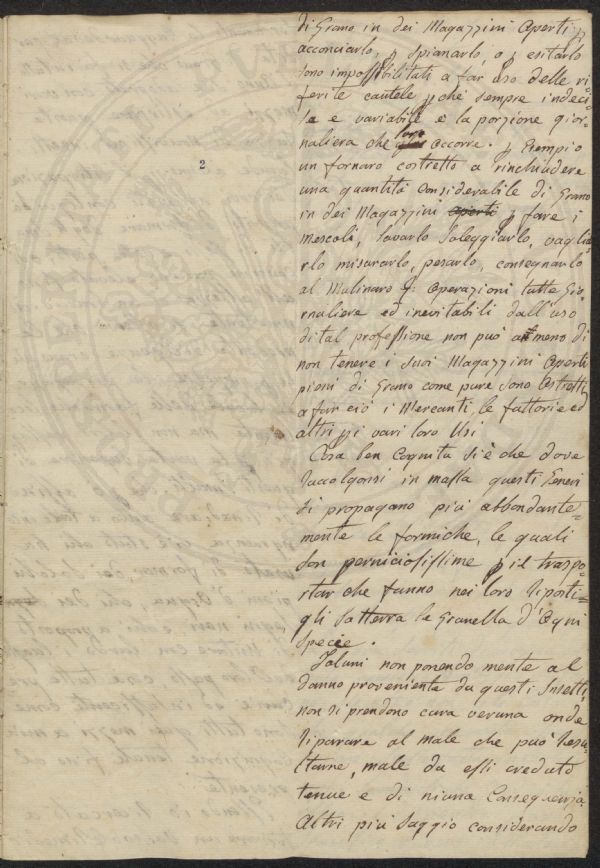 di Grano in dei Magazzini Aperti p
acconciarlo, p spianarlo, o p esitarlo
sono impossibilitati a far uso delle ri=
ferite cautele p che sempre indeci
sa e variabile e la porzione gior=
naliera che loro occorre. p Esempio
un fornaro costretto a rinchiudere
una quantità Considerabile di Grano
in dei Magazzini aperti p fare i
mescoli, lavarlo Soleggiarlo, vaglia
rlo misurarlo, pesarlo, consegnarlo
al Mulinaro Operazioni tutte Gio
rnaliere ed inevitabili dall'uso
di tal professione non può a meno di
non tenere i suoi Magazzini Aperti
pieni di Grano come pure sono Costretti
a far ciò i Mercanti, le fattorie ed
altri p i vari loro Usi
Cosa ben Cognita si è che dove
raccolgonsi in massa questi Generi
si propagano più abbondante=
mente le formiche, le quali
son perniciosissime p il traspo=
rtar che fanno nei loro riposti=
gli sotterra la Granella d'Ogni
specie.
Taluni non ponendo mente al
danno proveniente da questi Insetti,
non si prendono cura veruna onde
riparare al male che può resu=
ltarne, male da essi creduto
tenue e di niuna Conseguenza.
Altri più saggio considerando
2